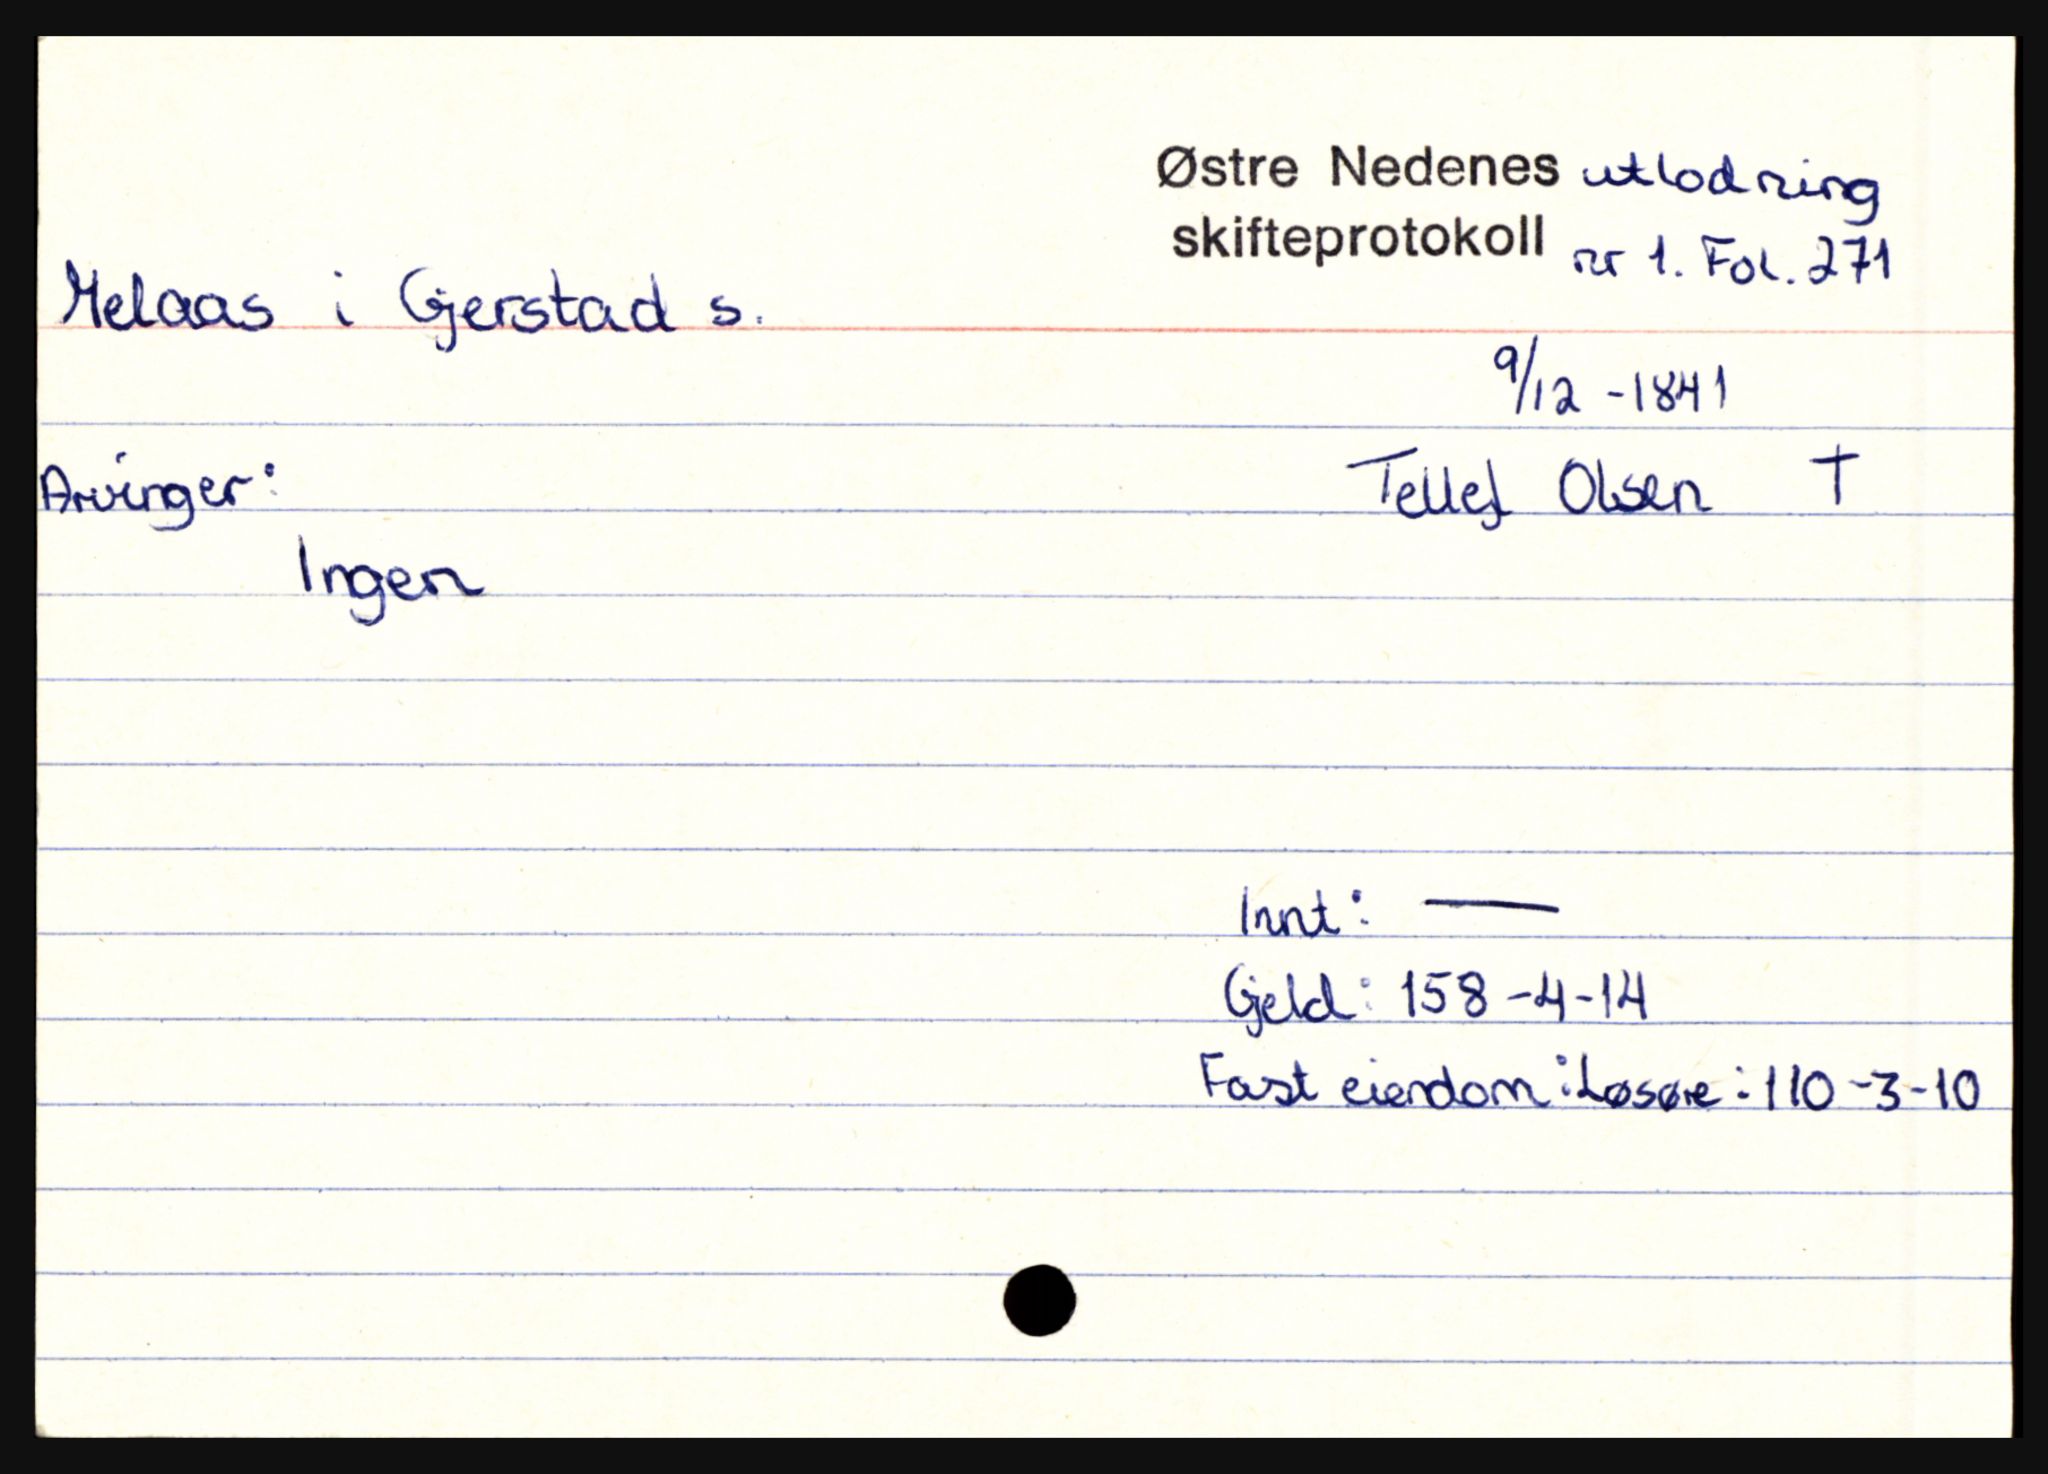 Østre Nedenes utlodning
skifteprotokoll nr 1. Fol. 271
Melaas i Gjerstad s.
9/12 - 1841
Arvinger: Tellef Olsen †
Ingen
Innt: —
Gjeld: 158 - 4 - 14
Fast eiendom: Løsøre: 110 - 3 - 10